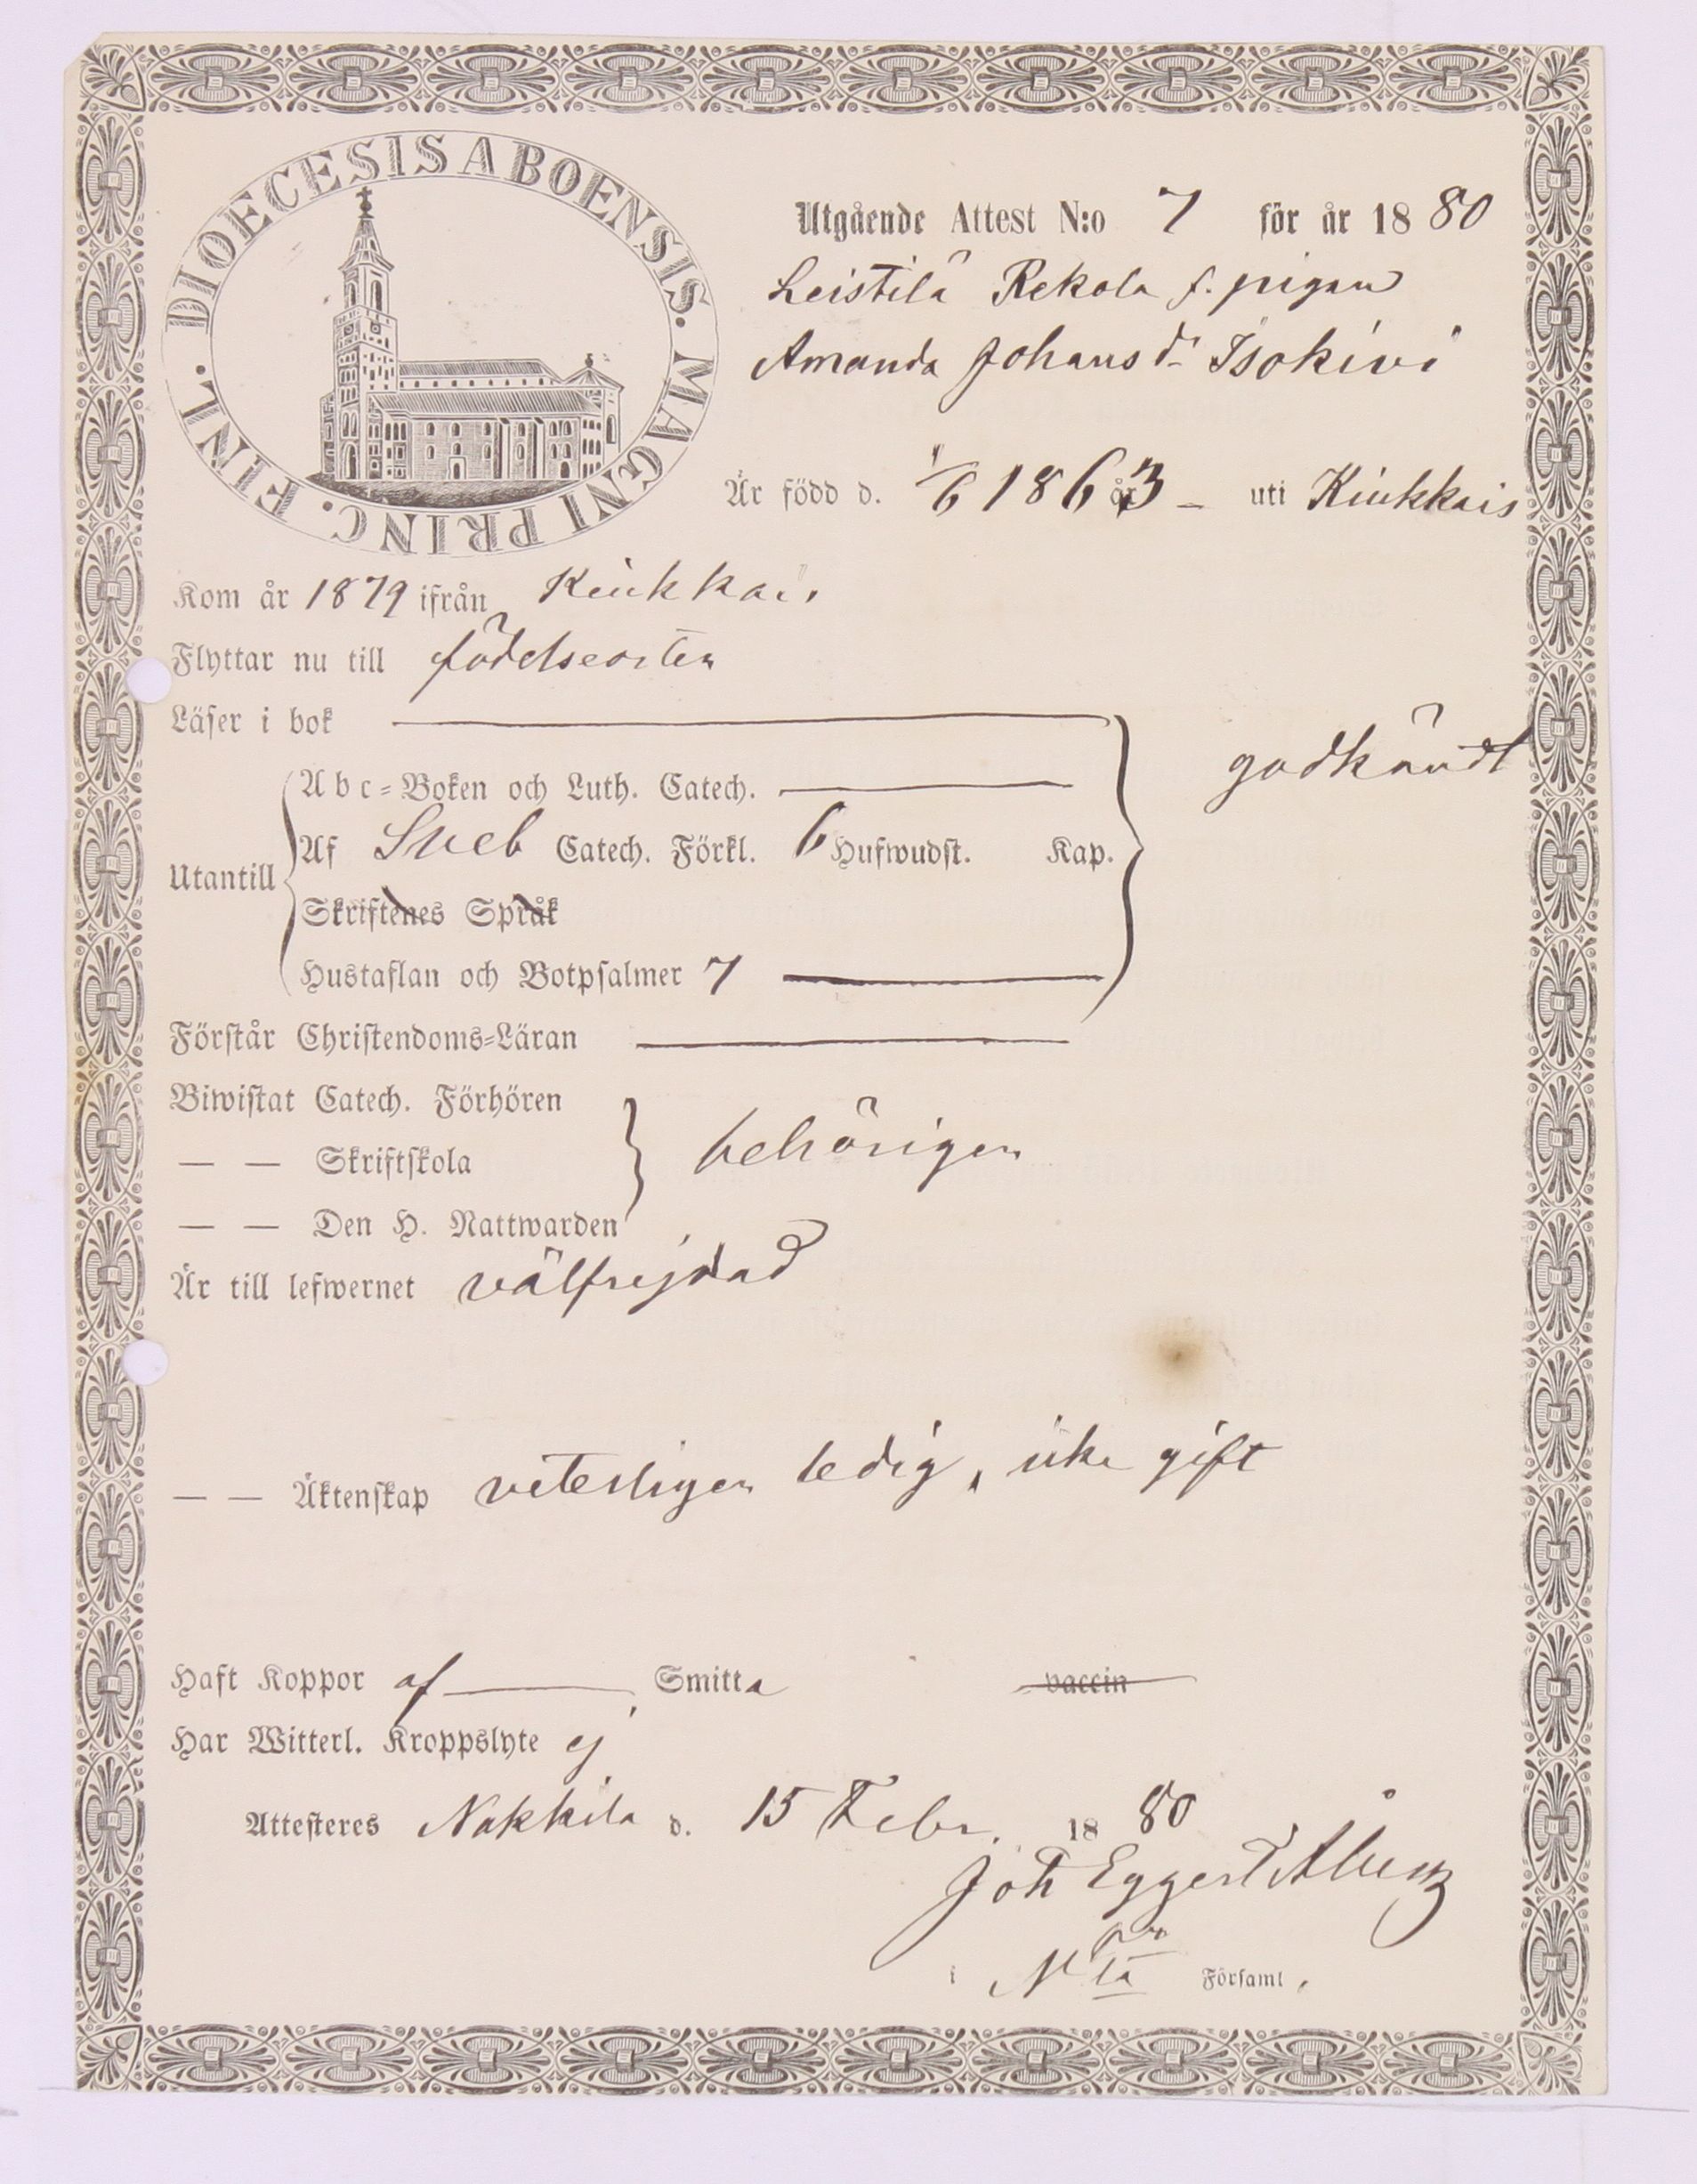 DIOECESIS ABOENSIS. MAGNI PRINC. FINL.
Utgående Attest N:o 7 för år 1880
Leistilä Rekola f. pigan
Amanda Johans d:r Isokivi
Är född d. 1/6 1863 uti Kiukkais
Kom år 1879 ifrån Kiukkais
Flyttar nu till födelseorten
Läser i bok
godkändt
Abc-Boken och Luth. Catech.
Utantill
Af Sveb Catech. Förkl. 6 Hufwudst. Kap.
Skriftenes Språk
Hustaflan och Botpsalmer 7
Förstår Christendoms-Läran
Biwistat Catech. Förhören
— — Skriftskola behörigen
— — Den H. Nattwarden
Är till lefwernet välfrejdad
— — Äktenskap veterligen ledig, icke gift
Haft Koppor af Smitta vaccin
Har Witterl. Kroppslyte ej
Attesteres Nakkila d. 15 Febr. 1880
Joh Eggert
i N la Församl.